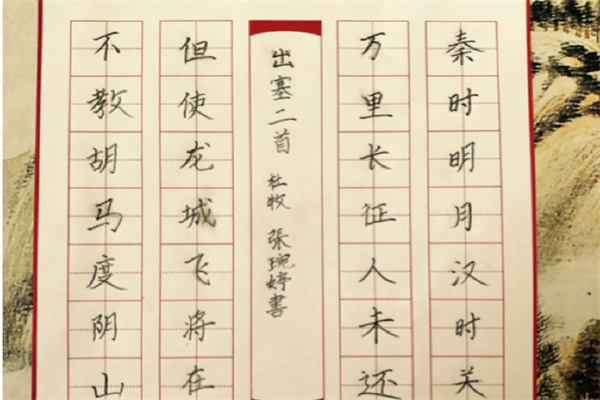 秦时明月汉时关
万里长征人未还
出塞二首 杜牧 張琬婷書
但使龙城飞将在
不教胡马度阴山